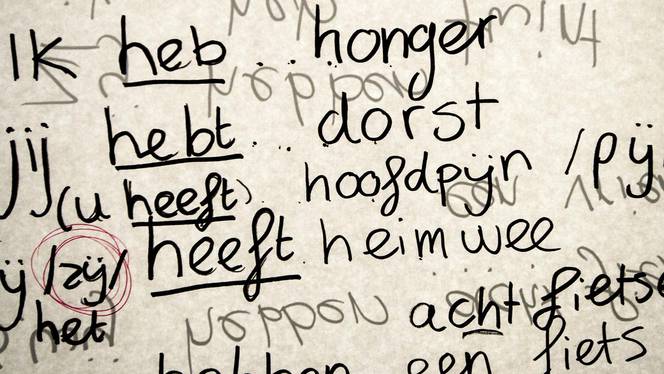 Ik heb .. honger
jij hebt ... dorst
(u heeft) .. hoofdpijn / pij
ij / zij / heeft heimwee
het acht fietse
hebben een fiets